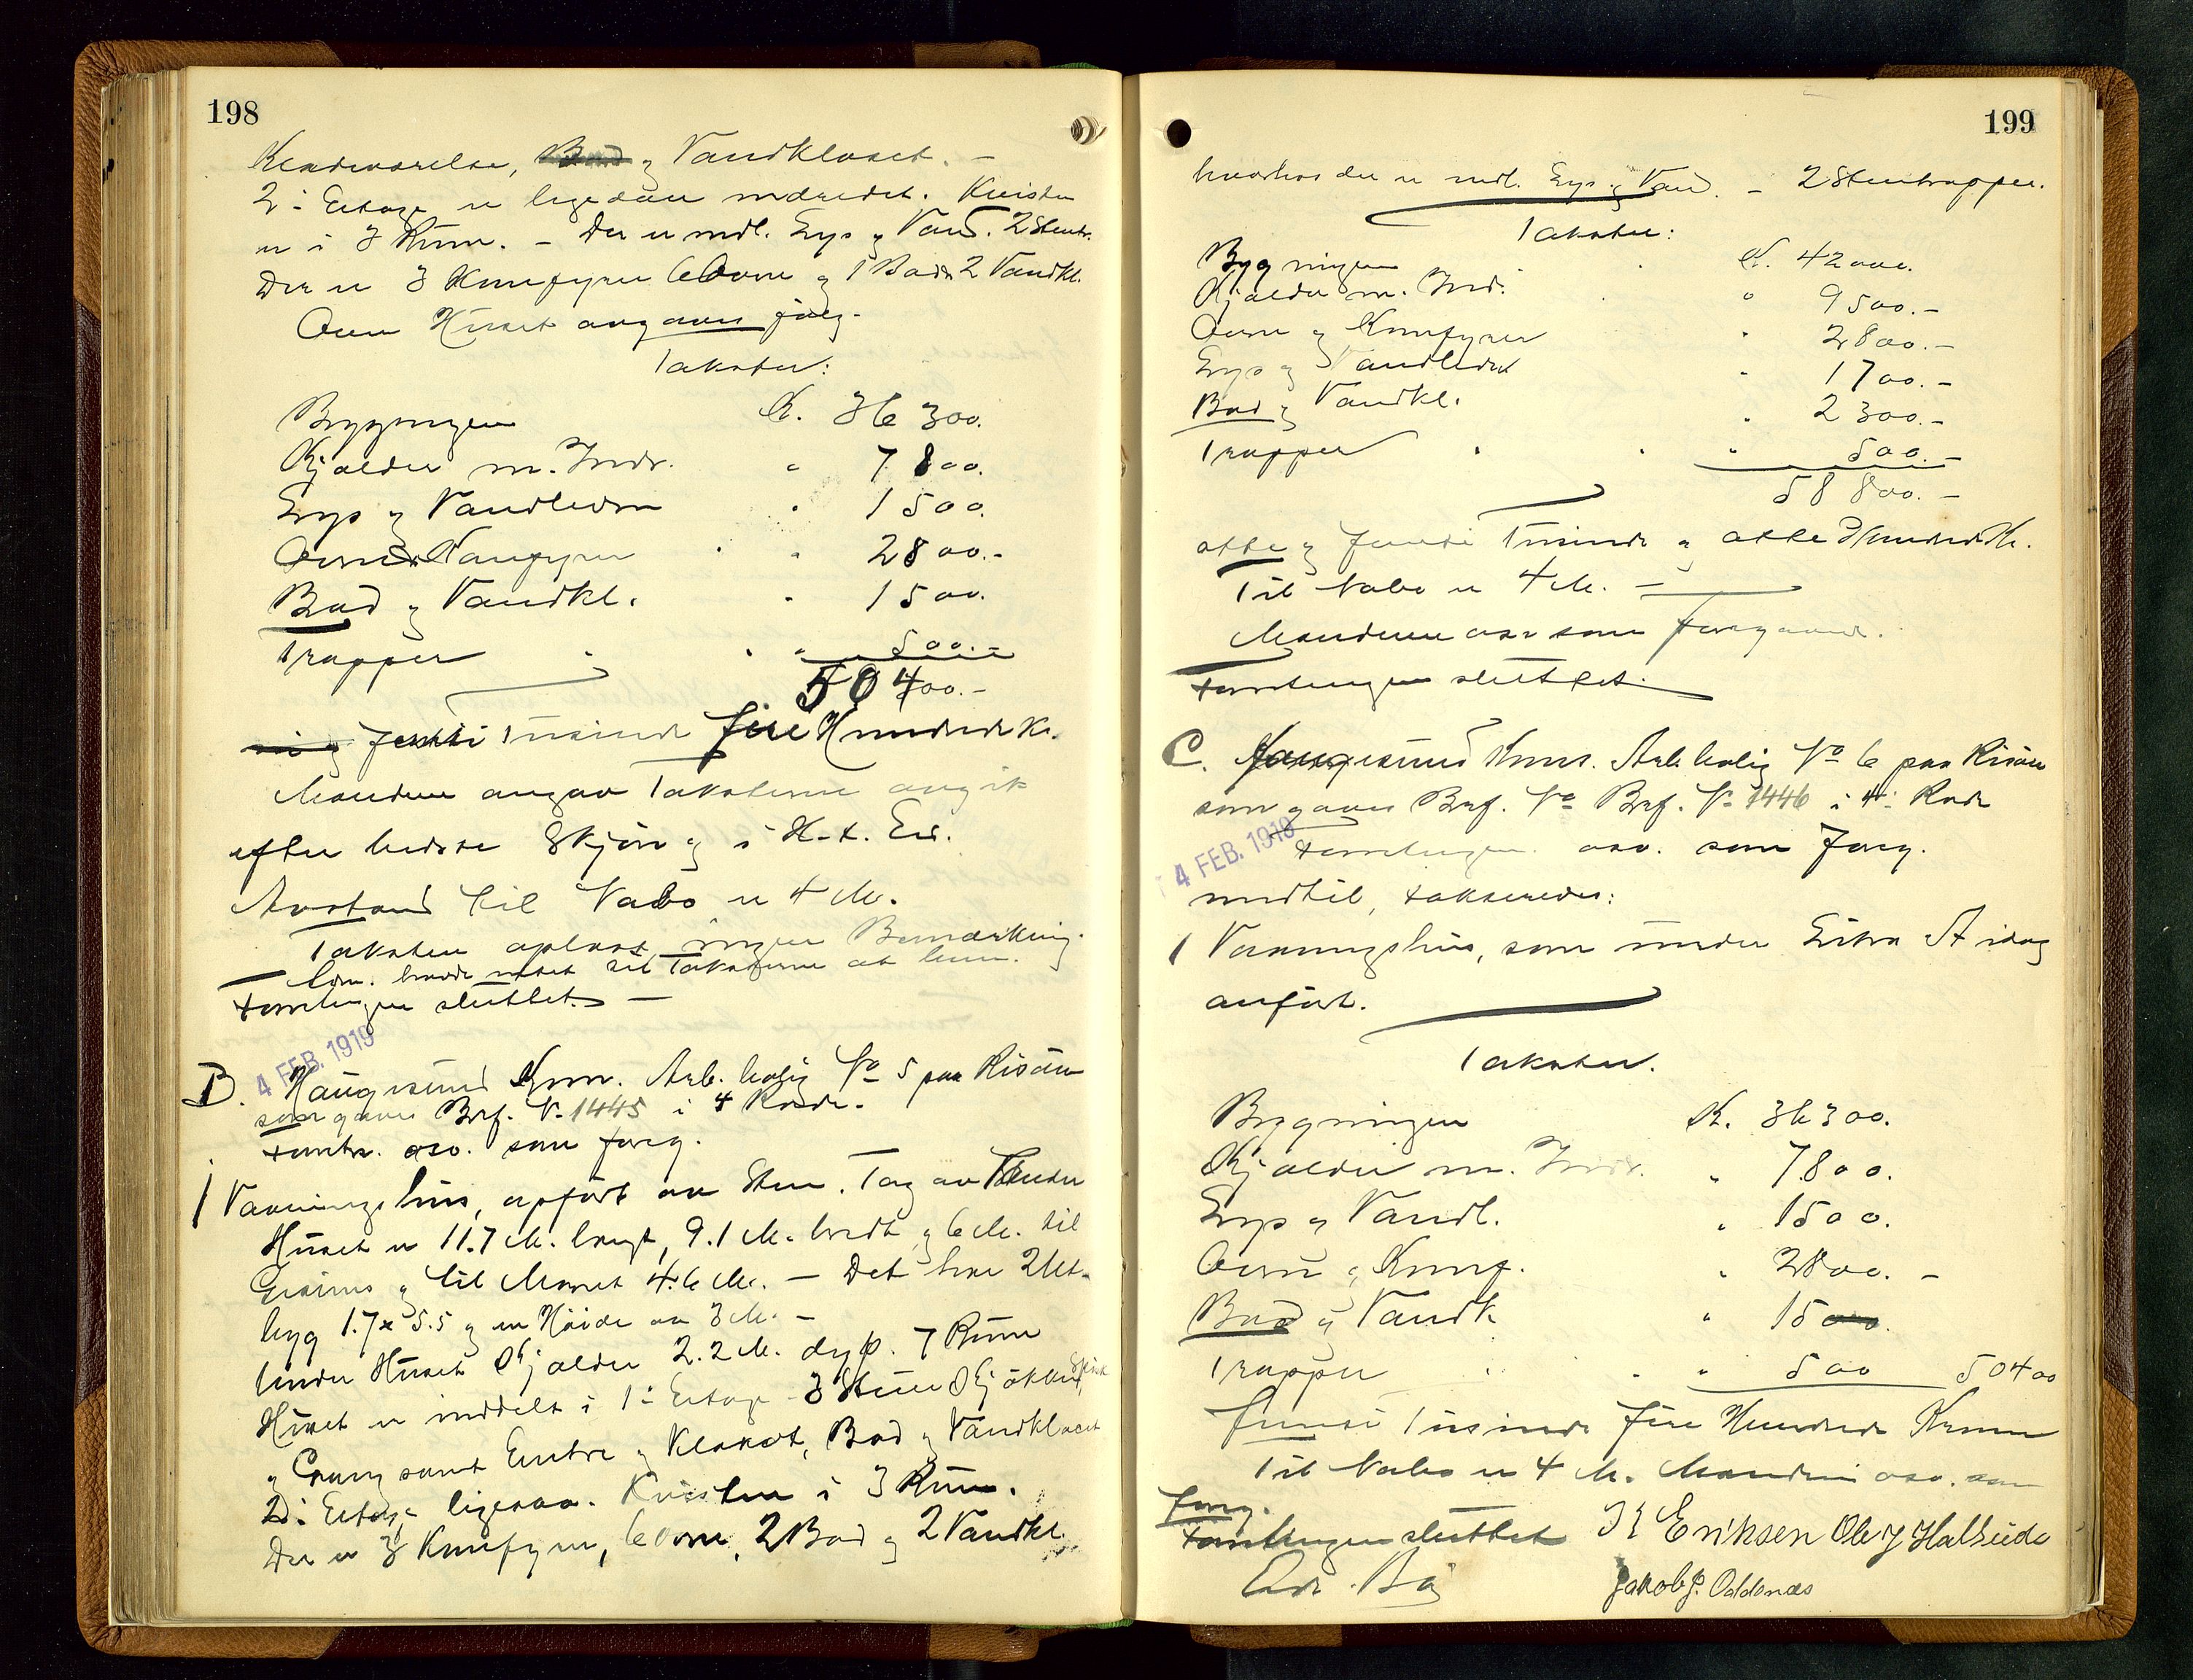 198
Bad og Vandkloset. –
2. Etage er ligedan indredet. Kvisten
er i 3 Rum. – Der er indl. Gas og Vand. 2 Stentr.
Der er 3 Komfyrer 6 Ovne og 1 Bad 2 Vandkl.
Huset
Takster:
Bygningen K. 36 300.
Kjælder m. Indr. " 7 800.
Gas og Vandledn " 1 500.
Ovner Komfyrer " 2800.-
Bad og Vandkl. " 1500.
Trapper " 500.-
50 400.-
femti Tusinde fire Hundrede Kr.
Mændene angav Taksterne avgit
efter bedste Skjøn og i H. t. Ed.
Avstand til Nabo er 4 M.
Taksten oplæst ingen Bemærkning.
Forretningen sluttet. –
4 FEB. 1919
B. Haugesund Kom. Arb. bolig No 5 paa Risøen
som gives Brf. No 1445 i 4 Rode.
Forretn. osv. som foreg.
1 Vaaningshus, opført av Sten. Tag av
Huset er 11.7 M. langt, 9.1 M. bredt og 6 M. til
Gesims og til Mønet 4.6 M. – Det har 2 Ut-
byg 1.7 x 5.5 og en Høide av 3 M. –
Under Huset Kjælder 2.2 M. dyp. 7 Rum
Huset er inddelt i 1. Etage 3 Stuer Kjøkken, Spisk
og Gang samt Entre og Klosæt, Bad og Vandkloset
2. Etage ligesaa. Kvisten i 3 Rum.
Der er 3 Komfyrer, 6 Ovne, 2 Bad og 2 Vandkl.
199
hvorhos der er indl. Gas og Vand. – 2 Stentrapper.
Takster:
Bygningen K. 42000.
Kjælder m. Ind. " 9500.-
Ovne og Komfyrer " 2800.-
Gas og Vandledn " 1700.-
Bad og Vandkl. " 2300.-
Trapper " 500.-
58 800.-
otte og femti Tusinde og otte Hundrede Kr.
Til Nabo er 4 M. –
Mændene osv som foregaaende.
Forretningen sluttet.
C. Haugesund Kom. Arb. bolig No 6 paa Risøen
som gives Brf. No Brf. No 1446 i 4. Rode
4 FEB. 1919
Forretningen osv. som foreg.
indtil, takseredes:
1 Vaaningshus, som under Litra A idag
anført.
Takster.
Bygningen K. 36300.
Kjælder m. Indr. " 7800.
Gas og Vandl. " 1500.
Ovne og Komf. " 2800. -
Bad og Vandk " 1500.
Trapper " 500 50400
femti Tusinde fire Hundrede Kroner
Til Nabo er 4 M. Mændene osv. som
foreg.
Forretningen sluttet Eriksen Ole J Halseide
Jakob J. Oddenæs